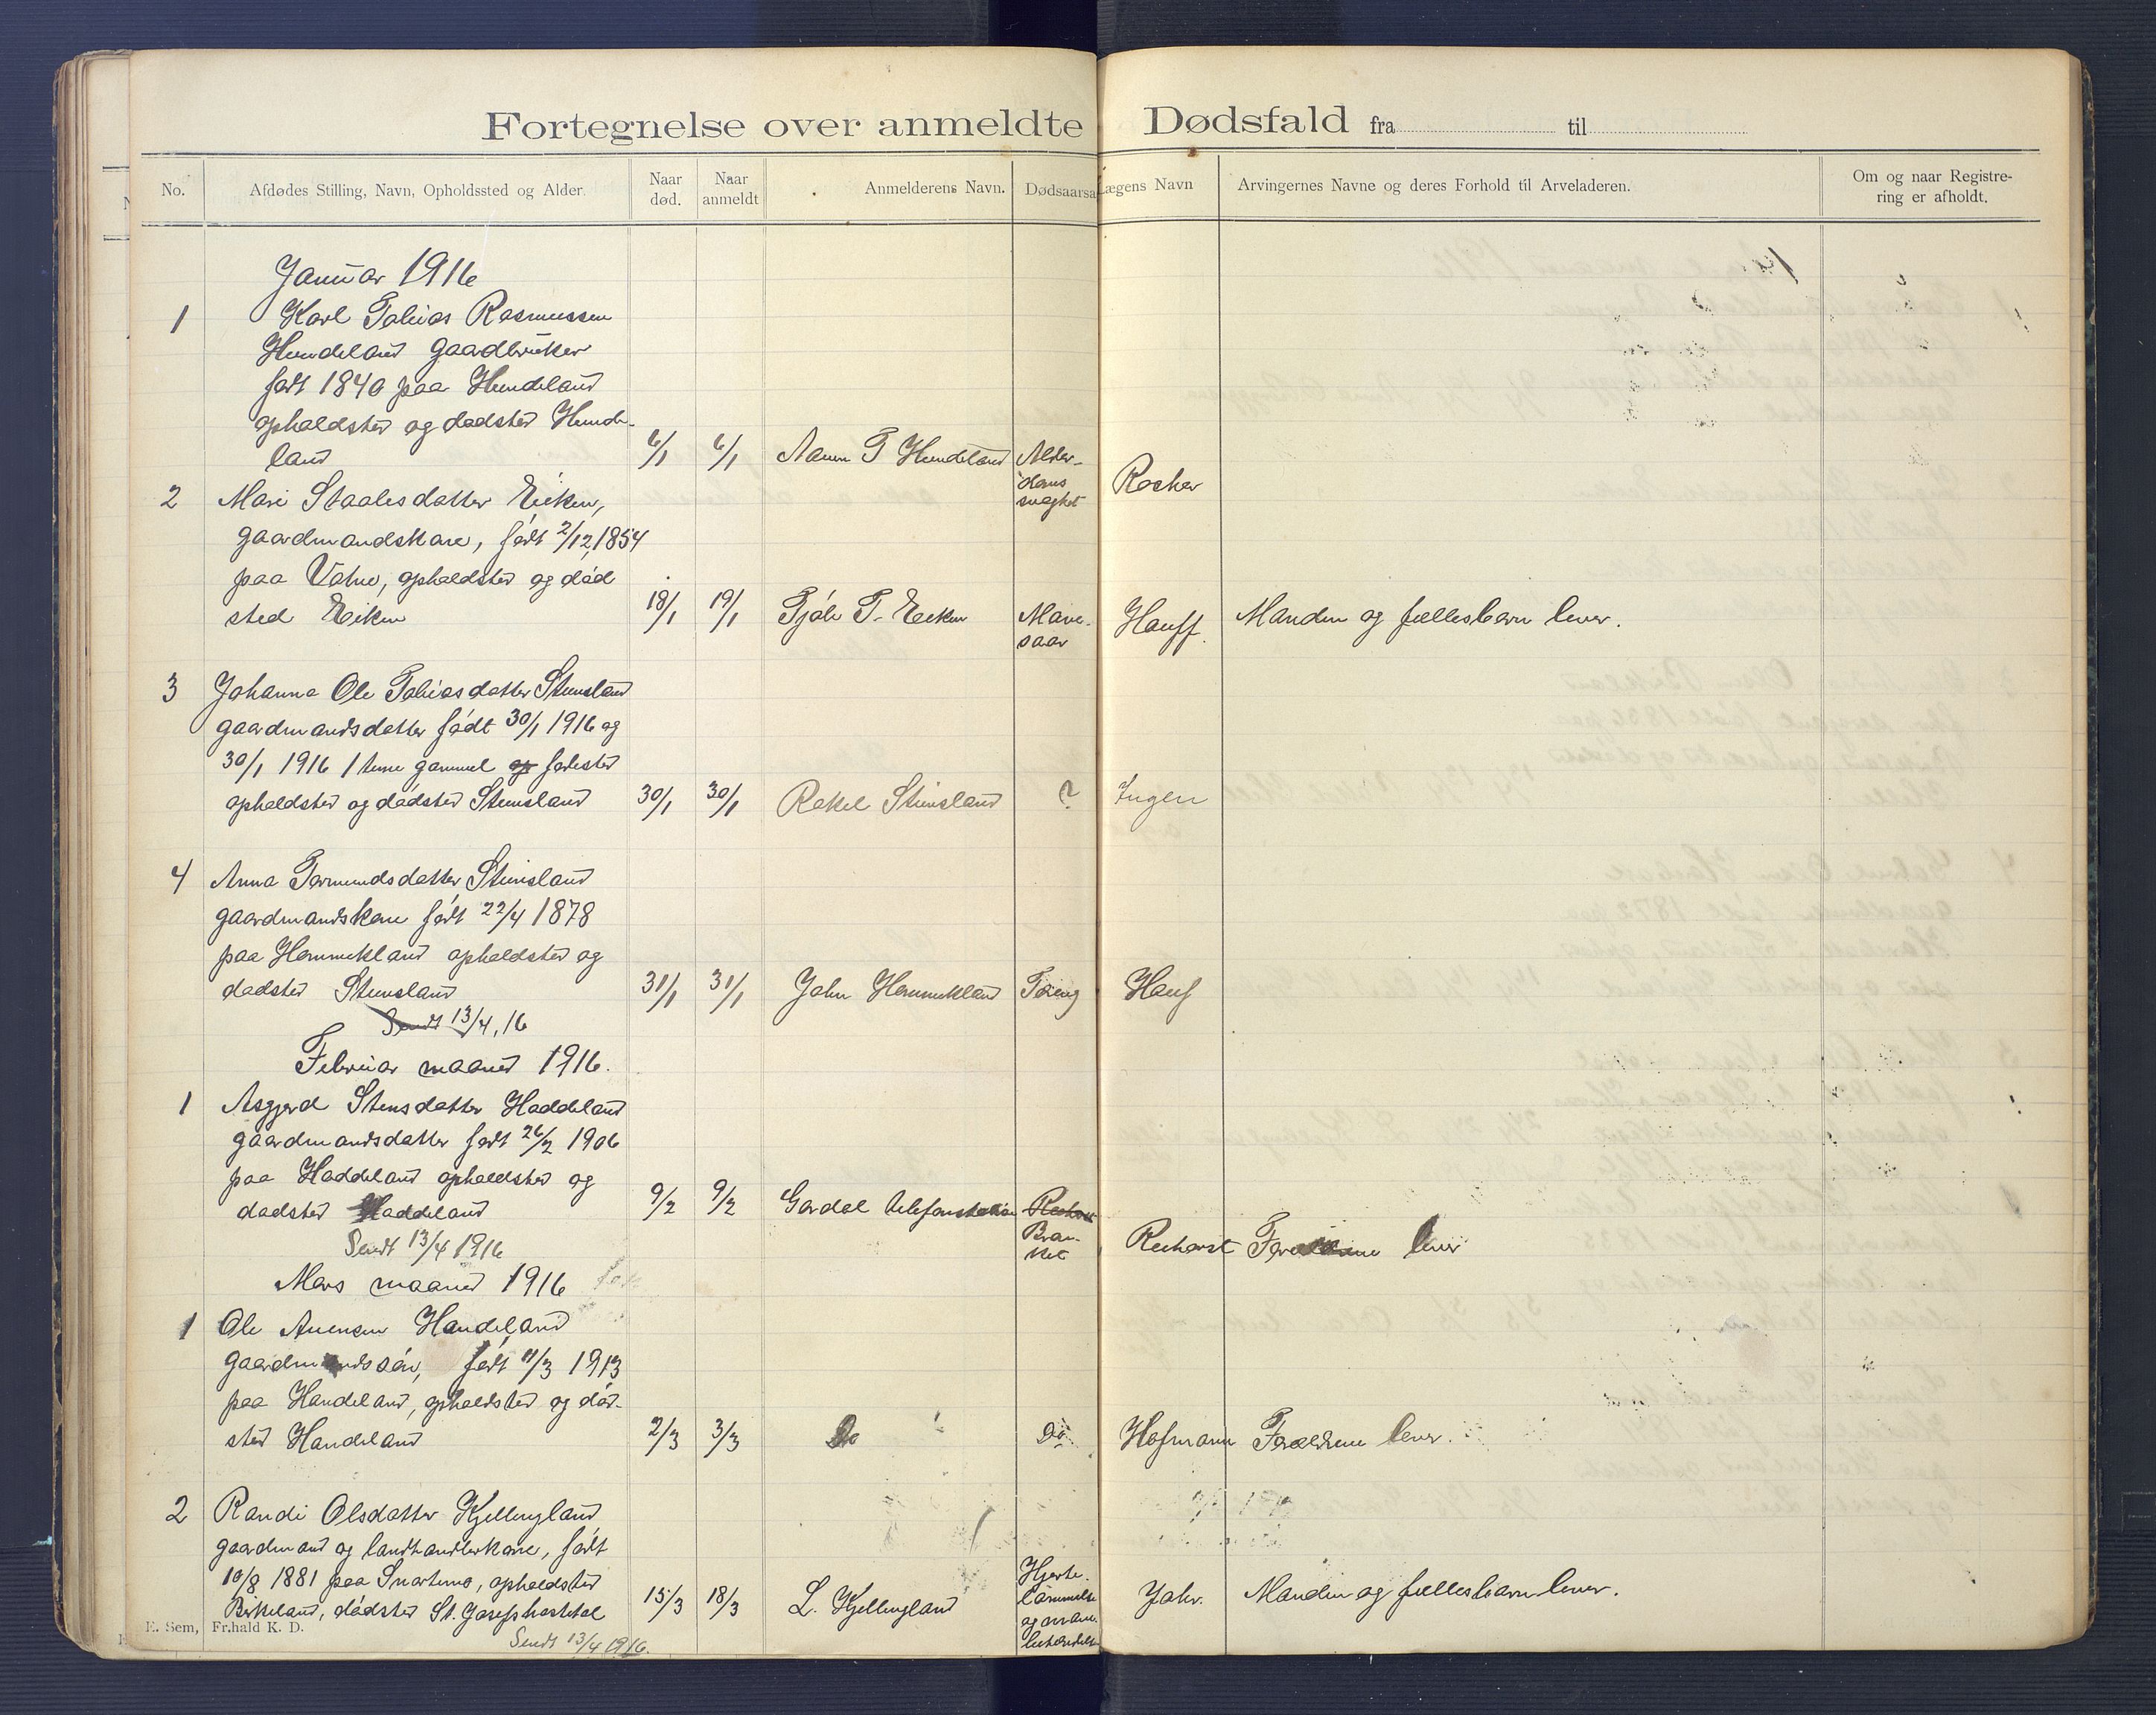 Fortegnelse over anmeldte Dødsfald fra til
No.
Afdødes Stilling, Navn, Opholdssted og Alder.
Naar død.
Naar anmeldt
Anmelderens Navn.
Dødsaarsa
Lægens Navn
Arvingernes Navne og deres Forhold til Arveladeren.
Om og naar Registre-
ring er afholdt.
Januar 1916
1 Karl Tobias Rasmussen
Hundeland gaardbruker
født 1840 paa Hundeland
opholdsted og dødsted Hunde-
land 6/1 6/1 T Hundeland Alder-
doms
svaghet
Rosher
2 Mari Staalesdatter Eiken,
gaardmandskone, født 2/12 1854
paa opholdsted og død
sted Eiken 18/1 19/1 T. Eiken Mave-
saar
Hauff. Manden og fellesbarn lever.
3 Johanna Ole Tobiasdatter Stensland
gaardmandsdatter født 30/1 1916 og
30/1 1916 1 time gammel fødested
opholdsted og dødsted Stensland 30/1 30/1 Rakel Stensland ? Ingen
4 Anna Tormundsdatter Stensland
gaardmandskone født 22/4 1878
paa Hommekland opholdsted og
dødsted Stensland 31/1 31/1 John Hommekland Tæring Hauf
Sendt 13/4, 16
Februar maaned 1916.
1 Asgjerd Stensdatter Haddeland
gaardmandsdatter født 26/2 1906
paa Haddeland opholdsted og
dødsted Haddeland 9/2 9/2 telefonstation
Bron-
kit
Reichorst lever
Sendt 13/4 1916
Mars maaned 1916
1 Ole Aanensen Handeland
gaardmandssøn, født 11/3 1913
paa Handeland, opholdsted og død-
sted Handeland 2/3 3/3 Do Do Hofmann Forældrene lever.
2 Randi Olsdatter Kjellingland
gaardmand og landhandlerkone, født
10/8 1881 paa Snartemo, opholdsted
Birkeland, dødsted St. Josefs hostital 15/3 18/3 L. Kjellingland
Hjerte-
lammelse
og
Jahr. Manden og fellesbarn lever.
E. Sem, Fr.hald K. D.
Sendt 13/4 1916.